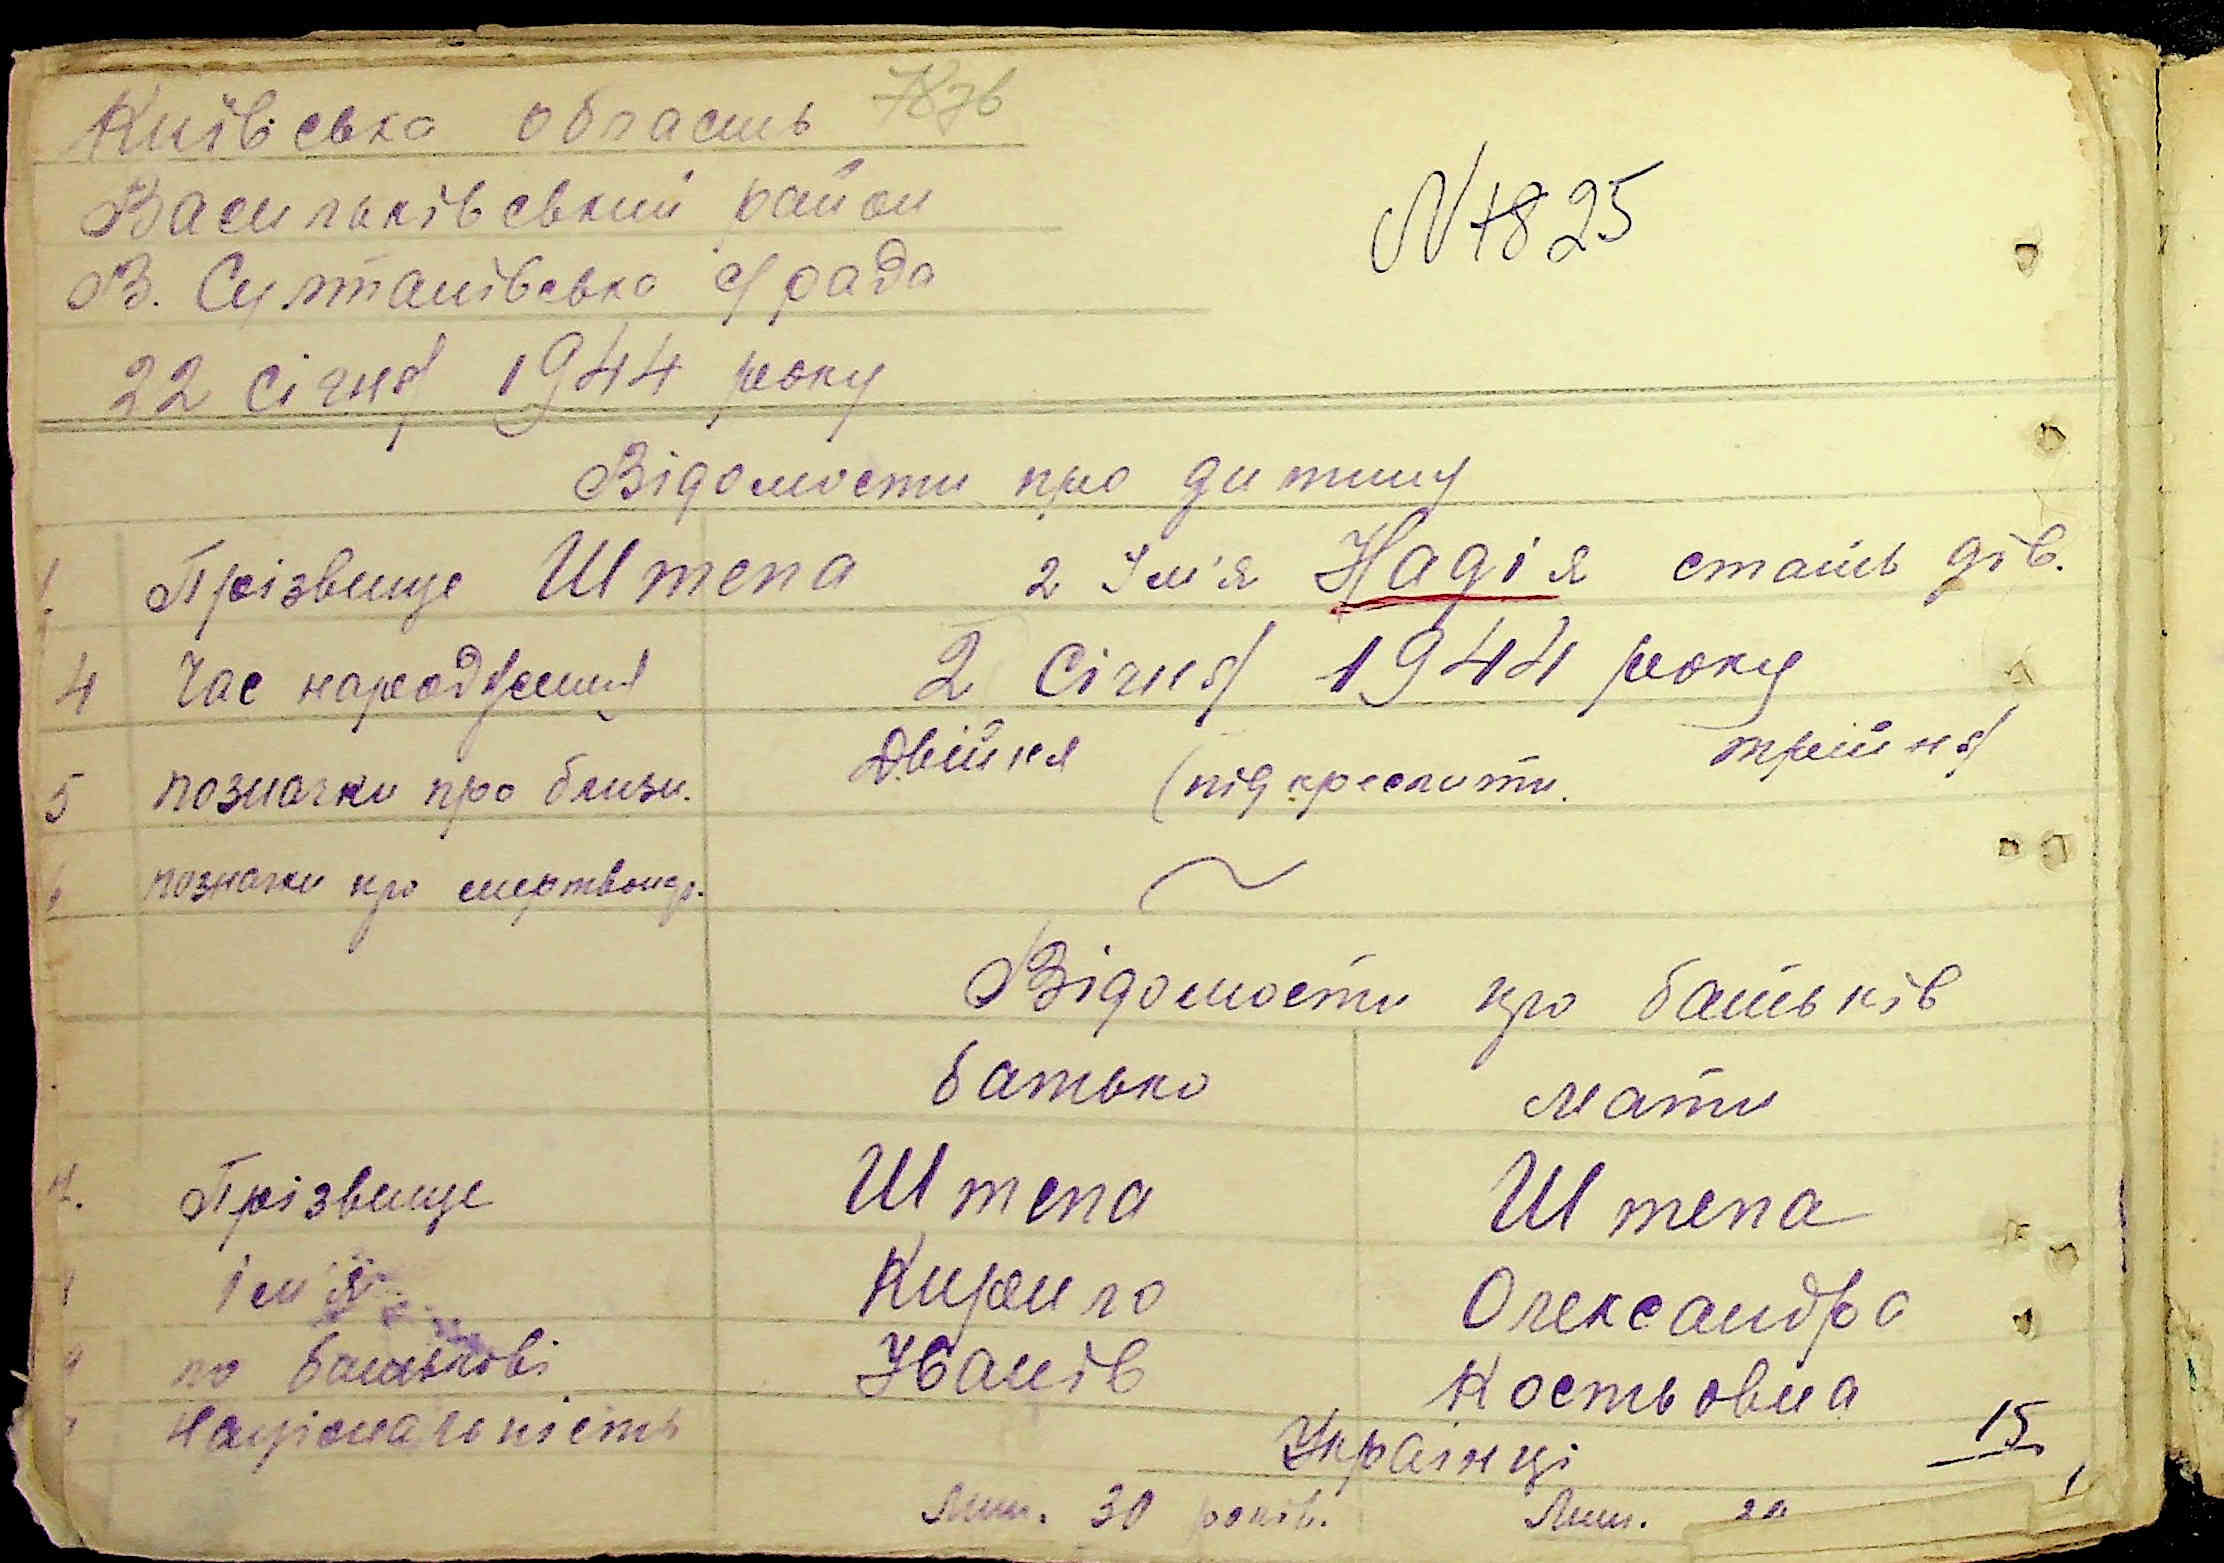 Київська область
Васильківський район
В. Султанівська с/рада
22 січня 1944 року
N 1825
Відомости про дитину
1. Прізвище Штепа 2 Ім'я Надія стать дів.
4 Час народження 2 Січня 1944 року
5 позначки про близн. Двійня (підкреслити. трийня
6 позначки про смертвонар.
Відомости про батьків
батько мати
7. Прізвище Штепа Штепа
8 Ім'я Кирило Олександра
9 по батькові Іванів Костьовна
Національність Українці 15
Лит. 30 років. Лит.